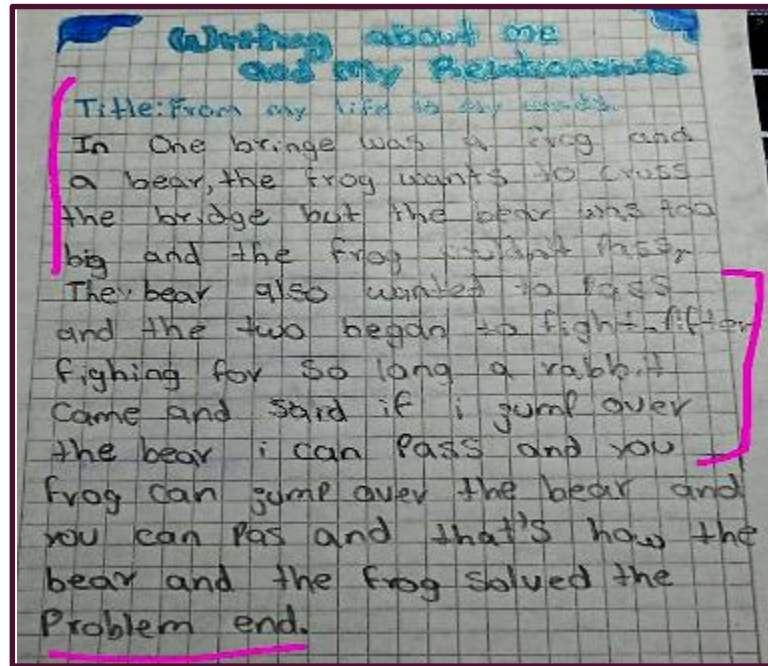 Writing about me
and my Relationships
Title: From my life to my words.
In One bringe was a frog and
a bear, the frog wants to cross
the bridge but the bear was too
big and the frog couldnt Pass,
The bear also wanted to Pass
and the two began to fight. After
fighing for so long a rabbit
Came and said if i jump over
the bear i can Pass and you
frog can jump over the bear and
you can Pas and that's how the
bear and the frog solved the
Problem end.